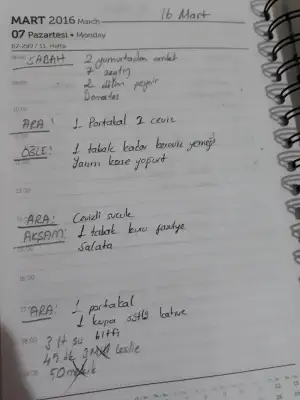 MART 2016 March
16 Mart
07 Pazartesi • Monday
11. Hafta
SABAH 2 yumurtadan omlet
7 zeytin
2 dilim peynir
Domates
ARA: 1 Portakal 2 ceviz
ÖĞLE: 1 tabak kadar yemeği
Yarım kase yoğurt
ARA: Cevizli sucuk
AKŞAM: 1 tabak kuru fasulye
Salata
16:00
ARA: 1 portakal
1 kupa sütlü kahve
18:00
3 lt su bitti
45 dk
50